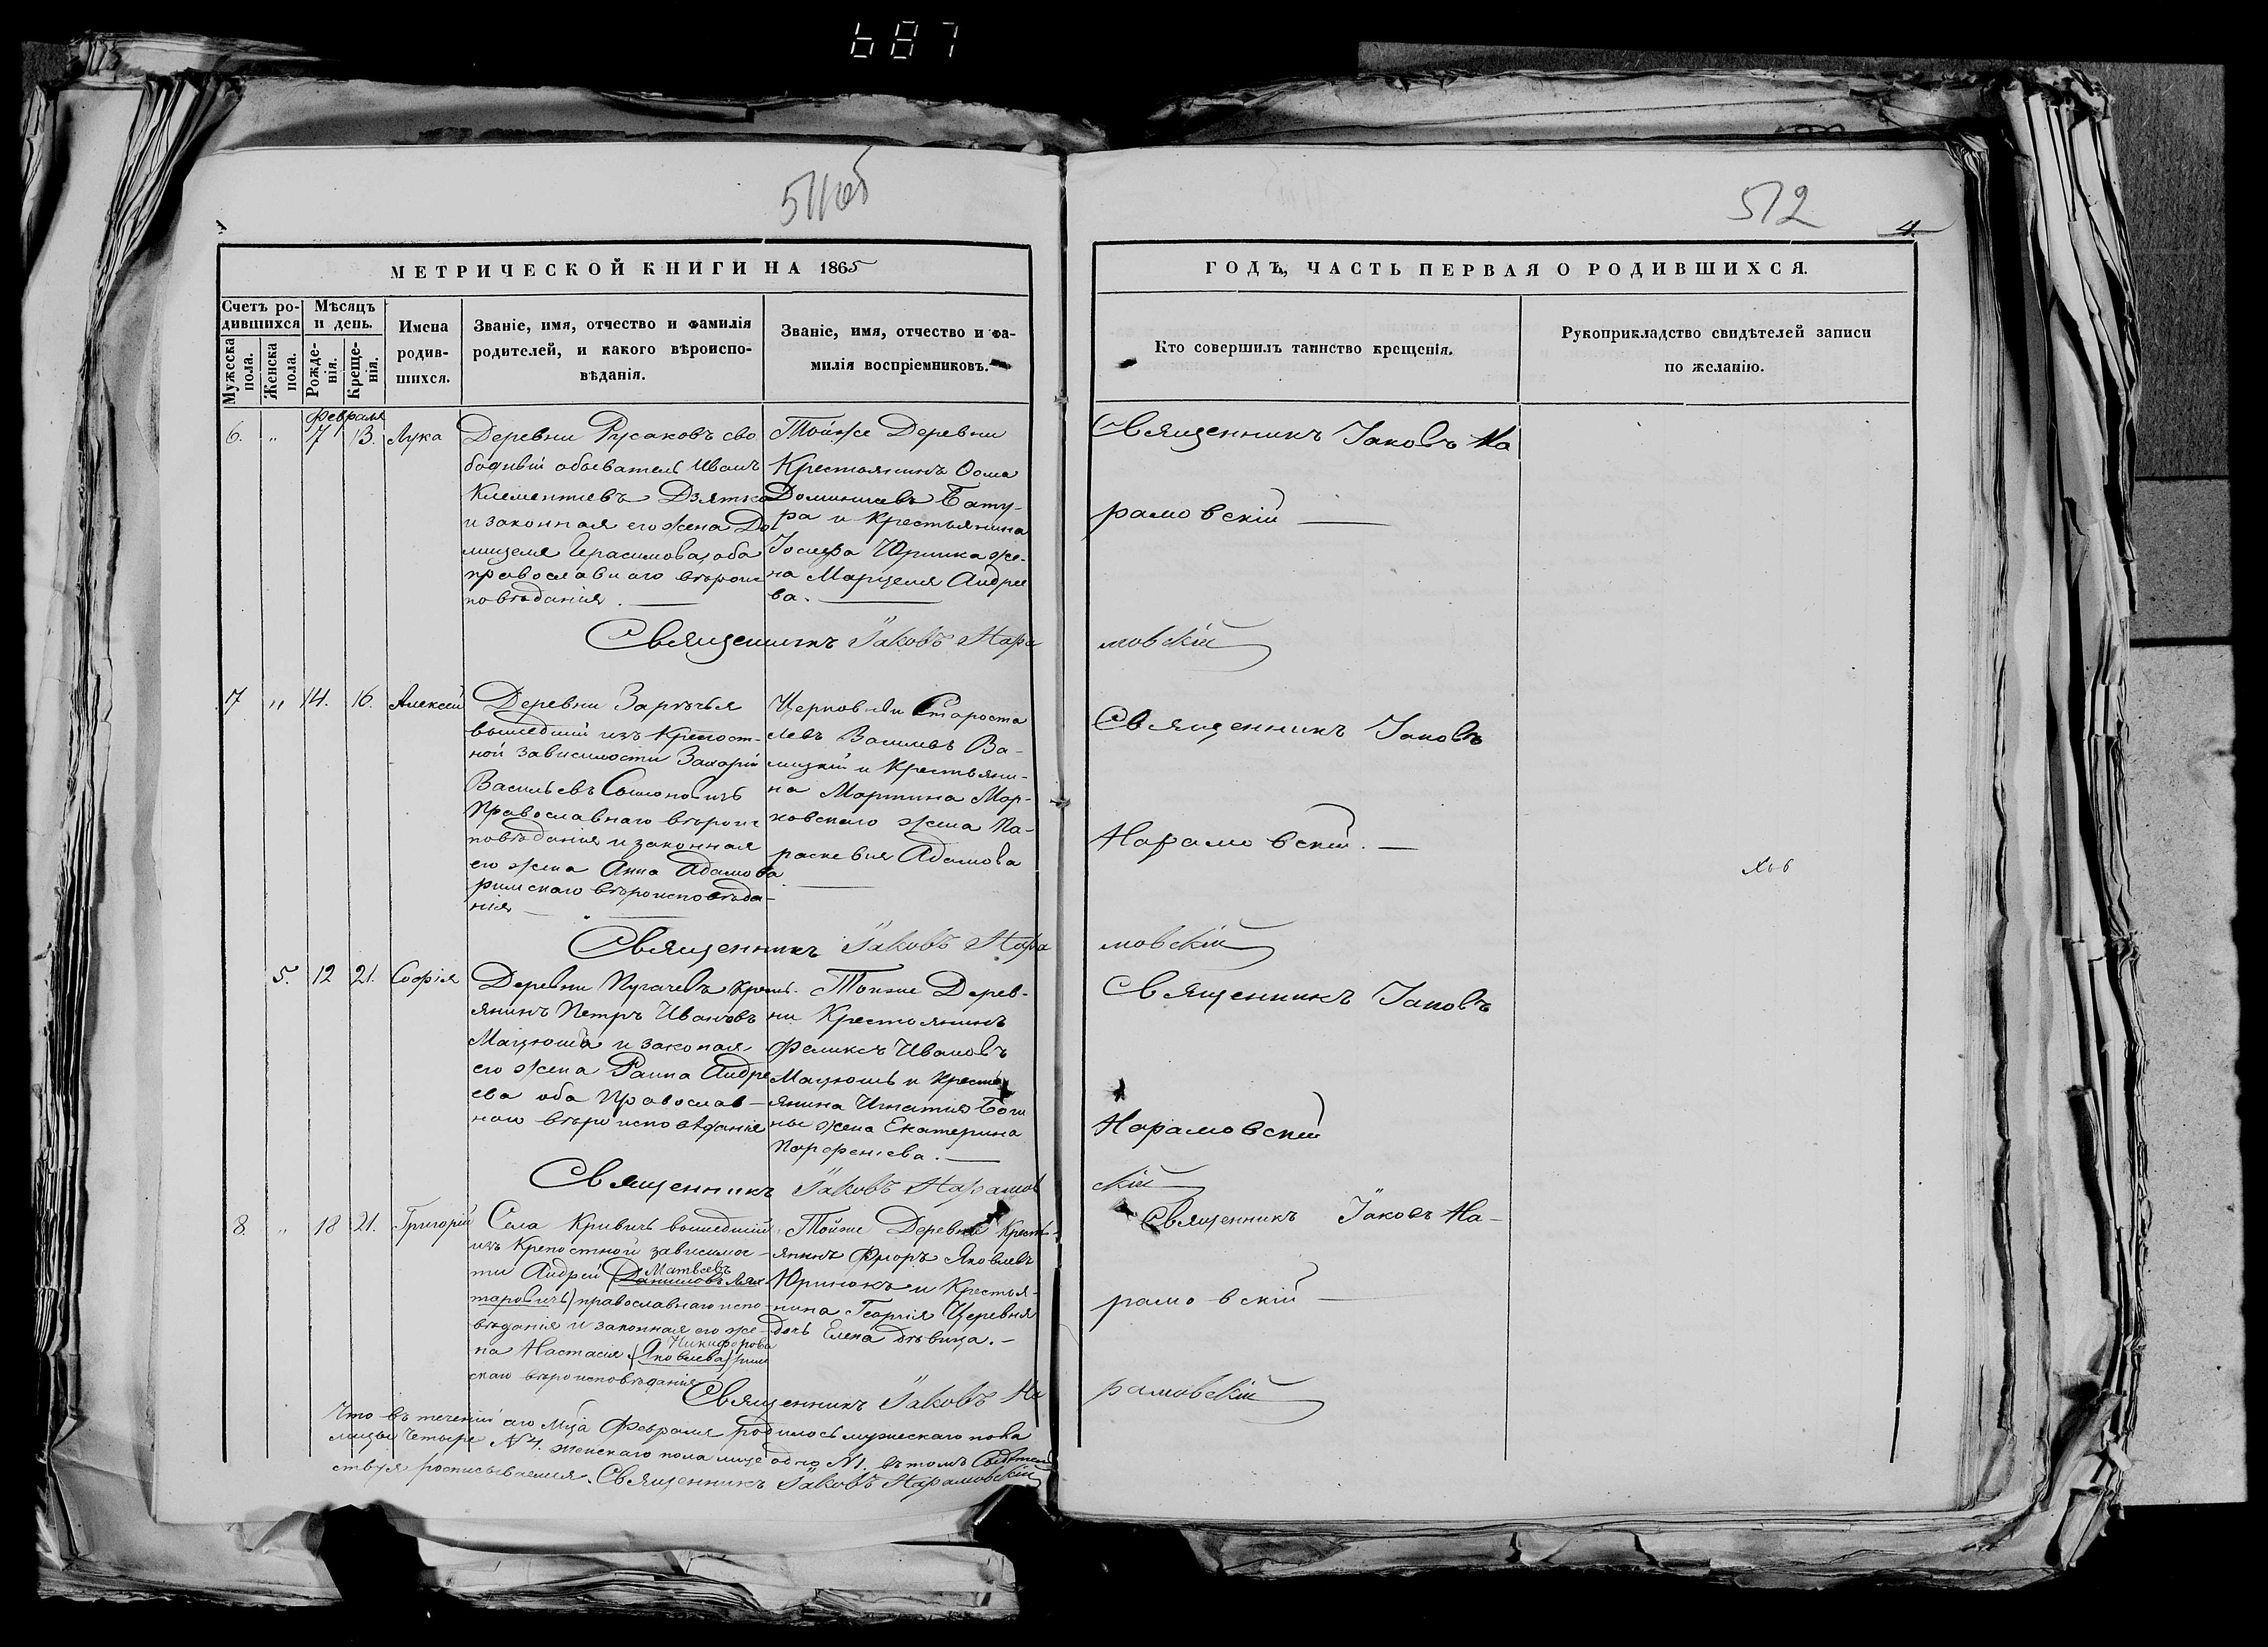 687
511об
512
4.
МЕТРИЧЕСКОЙ КНИГИ НА 1865
ГОДЪ, ЧАСТЬ ПЕРВАЯ О РОДИВШИХСЯ.
Счетъ ро-
дившихся
Мужеска
пола.
Женска
пола.
Мѣсяцъ
и день.
Рожде-
нія.
Креще-
нія.
Имена
родив-
шихся.
Званіе, имя, отчество и фамилія
родителей, и какого вѣроиспо-
вѣданія.
Званіе, имя, отчество и фа-
милія воспріемниковъ.
Кто совершилъ таинство крещенія.
Рукоприкладство свидѣтелей записи
по желанію.
Февраля
6. „ 7 13. Лука
Деревни Русаковъ сво
бодный обыватель Иванъ
Клементіевъ Дзятко
и законная его жена До
мицеля Герасимова, оба
православнаго вѣроис
повѣданія.
Тойже Деревни
Крестьянинъ Ѳома
Доминиковъ Бату-
ра и Крестьянина
Іосифа Юринка же-
на Марцеля Андрее
ва.
Священникъ Іаковъ На
рамовскій
Священникъ Іаковъ Нара
мовскій
7 „ 14. 16. Алексей
Деревни Зарѣчья
вышедшій изъ Крепост-
ной зависимости Захарій
Васильевъ Симоновичъ
Православнаго вѣроис
повѣданія и законная
его жена Анна Адамова
римскаго вѣроисповѣда-
нія
Церковный Староста
Левъ Василевъ Ва-
лицкій и Крестьяни-
на Мартина Мар-
ковскаго жена Па-
раскевія Адамова
Священникъ Іаковъ
Нарамовскій.
Священникъ Іаковъ Нара
мовскій
5. 12 21. Софія
Деревни Пугачевъ Кресть-
янинъ Петръ Ивановъ
Мацюша и законая
его жена Раина Андре
ева оба Православ-
наго вѣроисповѣданія
Тойже Дерев-
ни Крестьянинъ
Феликсъ Ивановъ
Мацюшь и Кресть
янина Игнатія
жена Екатерина
Парфеніева.
Священникъ Іаковъ
Нарамовскій
Священникъ Іаковъ Нарамов
скій
8. „ 18 21. Григорій
Села Кривичъ вышедшій
изъ Крепостной зависимос-
ти Андрей Матвѣевъ
(Даниловъ
таровичъ) православнаго испо-
вѣданія и законная его же-
на Настасія Никифорова
(Яковлева) рим
скаго вѣроисповѣданія
Тойже Деревни Кресть-
янинъ Флоръ Яковлевъ
Юринокъ и Крестья-
нина Георгія Церевня
дочь Елена дѣвица.-
Священникъ Іаковъ На-
рамовскій
Священникъ Іаковъ На
рамовскій
Что въ теченіи сего м-ца Февраля родилось мужескаго пола
лицы четыре N 4. женскаго пола лице одно N 1. въ томъ свѣдѣтель
ствуя росписываемся. Священникъ Іаковъ Нарамовскій